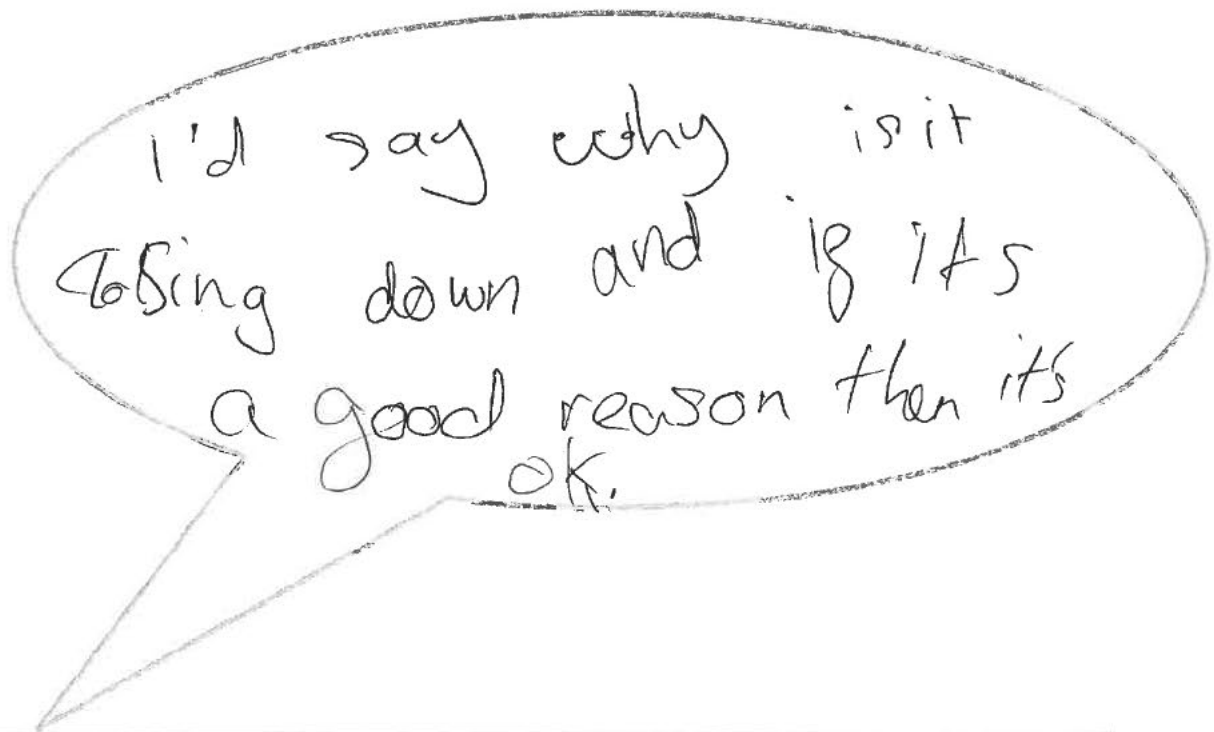 I'd say why is it
closing down and if its
a good reason then it's
ok.